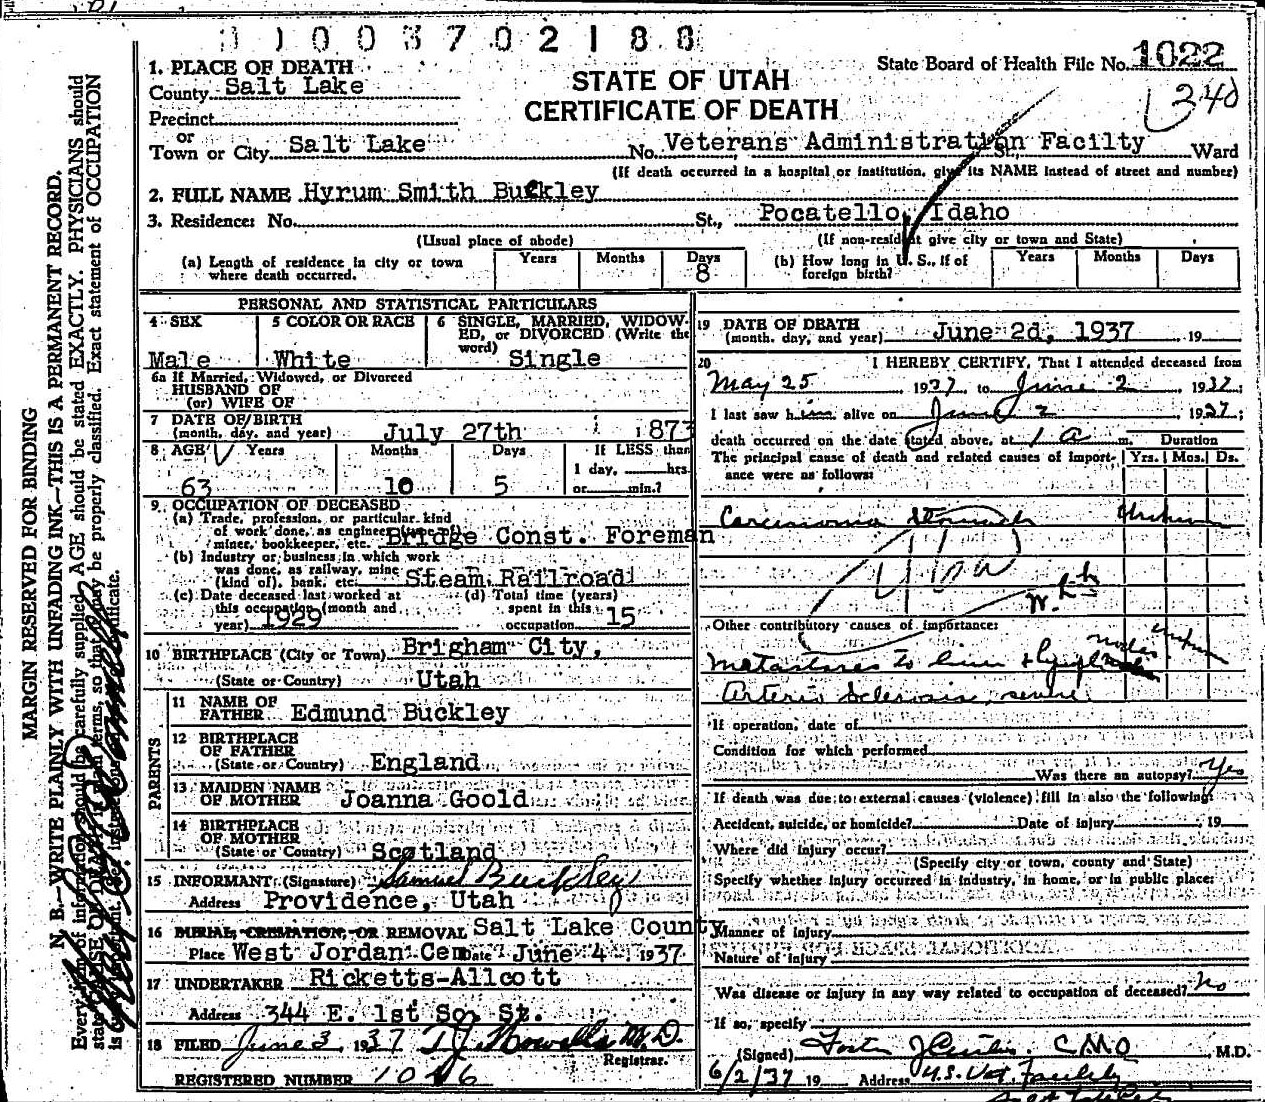 1003702188
1. PLACE OF DEATH
County Salt Lake
Precinct
or
Town or City Salt Lake
STATE OF UTAH
CERTIFICATE OF DEATH
State Board of Health File No. 1022
340
No. Veterans Administration Facilty St., Ward
(If death occurred in a hospital or institution, give its NAME instead of street and number)
2. FULL NAME Hyrum Smith Buckley
3. Residence: No. St., Pocatello, Idaho
(Usual place of abode) (If non-resident give city or town and State)
(a) Length of residence in city or town where death occurred. Years Months Days 8
(b) How long in U. S., if of foreign birth? Years Months Days
PERSONAL AND STATISTICAL PARTICULARS
4 SEX Male
5 COLOR OR RACE White
6 SINGLE, MARRIED, WIDOWED, or DIVORCED (Write the word) Single
6a If Married, Widowed, or Divorced
HUSBAND OF
(or) WIFE OF
7 DATE OF BIRTH
(month, day, and year) July 27th 1873
8 AGE Years Months Days If LESS than
1 day, hrs.
63 10 5 or min.?
9. OCCUPATION OF DECEASED
(a) Trade, profession, or particular kind
of work done, as engineer
miner, bookkeeper, etc. Bridge Const. Foreman
(b) Industry or business in which work
was done, as railway, mine
(kind of), bank, etc. Steam Railroad
(c) Date deceased last worked at
this occupation (month and
year) 1929
(d) Total time (years)
spent in this
occupation 15
10 BIRTHPLACE (City or Town) Brigham City,
(State or Country) Utah
PARENTS
11 NAME OF
FATHER Edmund Buckley
12 BIRTHPLACE
OF FATHER
(State or Country) England
13 MAIDEN NAME
OF MOTHER Joanna Goold
14 BIRTHPLACE
OF MOTHER
(State or Country) Scotland
15 INFORMANT (Signature) Samuel Buckley
Address Providence, Utah
16 BURIAL, CREMATION, OR REMOVAL Salt Lake County
Place West Jordan Cem Date June 4 1937
17 UNDERTAKER Ricketts-Allcott
Address 344 E. 1st So. St.
18 FILED June 3, 1937 T.J. Howells M.D.
Registrar.
REGISTERED NUMBER 1046
19 DATE OF DEATH
(month, day, and year) June 2d, 1937 19
20 I HEREBY CERTIFY, That I attended deceased from
May 25, 1937, to June 2, 1937;
I last saw him alive on June 2, 1937;
death occurred on the date stated above, at 1 a m.
Duration
The principal cause of death and related causes of importance were as follows:
Yrs. Mos. Ds.
Carcinoma Stomach Unknown
Other contributory causes of importance:
Metastases to liver & lymph nodes
Arterio Sclerosis, severe
If operation, date of
Condition for which performed
Was there an autopsy? Yes
If death was due to external causes (violence) fill in also the following:
Accident, suicide, or homicide? Date of injury , 19
Where did injury occur?
(Specify city or town, county and State)
Specify whether injury occurred in industry, in home, or in public place:
Manner of injury
Nature of injury
Was disease or injury in any way related to occupation of deceased? No
If so, specify
(Signed) Foster J Curtis. C M O, M.D.
6/2/37 19 Address U.S. Vet. Facility
MARGIN RESERVED FOR BINDING
N. B.—WRITE PLAINLY WITH UNFADING INK—THIS IS A PERMANENT RECORD.
Every item of information should be carefully supplied. AGE should be stated EXACTLY. PHYSICIANS should
state CAUSE OF DEATH in plain terms, so that it may be properly classified. Exact statement of OCCUPATION
is